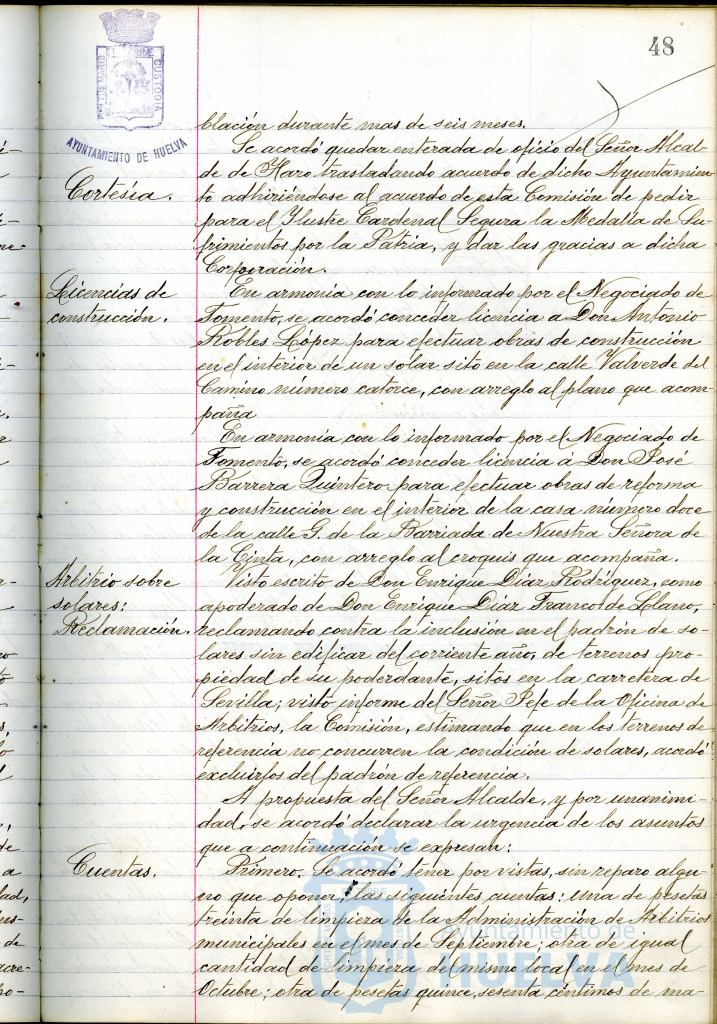 48
AYUNTAMIENTO DE HUELVA
blación durante mas de seis meses.
Cortesía.
Se acordó quedar enterada de oficio del Señor Alcal-
de de Haro trasladando acuerdo de dicho Ayuntamien-
to adhiriéndose al acuerdo de esta Comisión de pedir
para el Ilustre Cardenal Segura la Medalla de Su-
frimientos por la Patria, y dar las gracias a dicha
Corporación.
Licencias de
construcción.
En armonía con lo informado por el Negociado de
Fomento, se acordó conceder licencia a Don Antonio
Robles López para efectuar obras de construcción
en el interior de un solar sito en la calle Valverde del
Camino número catorce, con arreglo al plano que acom-
paña
En armonía con lo informado por el Negociado de
Fomento, se acordó conceder licencia á Don José
Barrera Quintero para efectuar obras de reforma
y construcción en el interior de la casa número doce
de la calle G. de la Barriada de Nuestra Señora de
la Cinta, con arreglo al croquis que acompaña.
Arbitrio sobre
solares:
Reclamación.
Visto escrito de Don Enrique Díaz Rodríguez, como
apoderado de Don Enrique Díaz Franco de Llano,
reclamando contra la inclusión en el padrón de so-
lares sin edificar del corriente año, de terrenos pro-
piedad de su poderdante, sitos en la carretera de
Sevilla; visto informe del Señor Jefe de la Oficina de
Arbitrios, la Comisión, estimando que en los terrenos de
referencia no concurren la condición de solares, acordó
excluirlos del padrón de referencia.
A propuesta del Señor Alcalde, y por unanimi-
dad, se acordó declarar la urgencia de los asuntos
que a continuación se expresan:
Cuentas.
Primero. Se acordó tener por vistas, sin reparo algu-
no que oponer, las siguientes cuentas: una de pesetas
treinta de limpieza de la Administración de Arbitrios
municipales en el mes de Septiembre; otra de igual
cantidad de limpieza del mismo local en el mes de
Octubre; otra de pesetas quince, sesenta céntimos de ma-
Ayuntamiento de
HUELVA